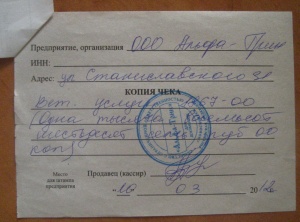 Предприятие, организация ООО Альфа-Грин
ИНН:
Адрес: ул Станиславского 31
КОПИЯ ЧЕКА
услуг 1867-00
Одна тысяча восемьсот
шестьдесят семь руб 00
коп
Место
для штампа
предприятия
Продавец (кассир)
03 20